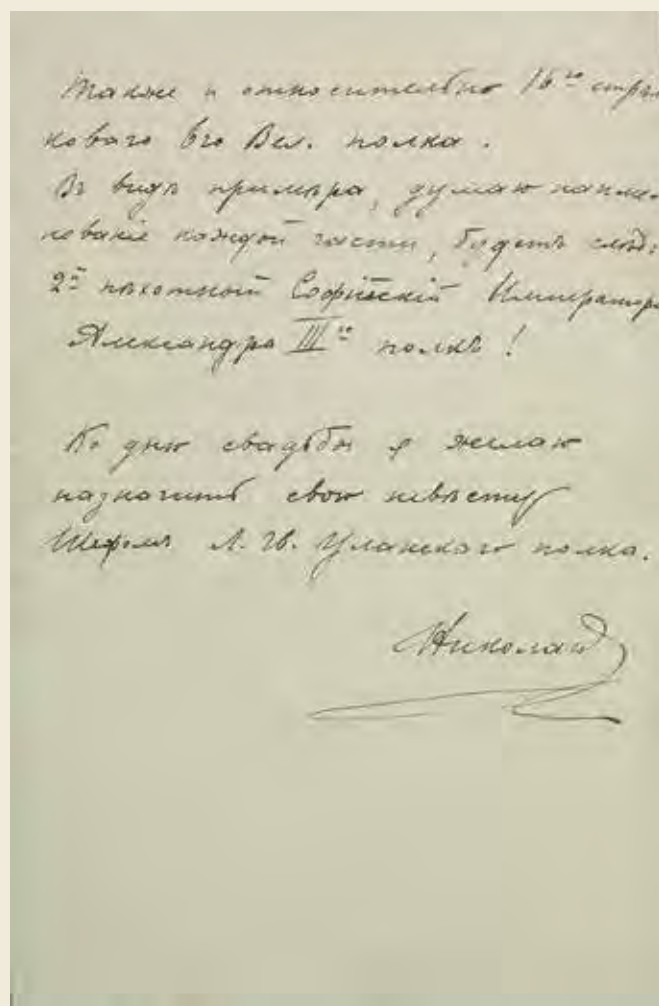 Также и относительно 16го стрѣл-
коваго Его Вел. полка.
Въ видѣ примѣра, думаю наиме-
нованіе каждой части, будетъ слѣд:
2й пѣхотный Софійскій Императора
Александра IIIго полкъ!
Ко дню свадьбы я желаю
назначить свою невѣсту
Шефомъ Л. Гв. Уланскаго полка.
Николай